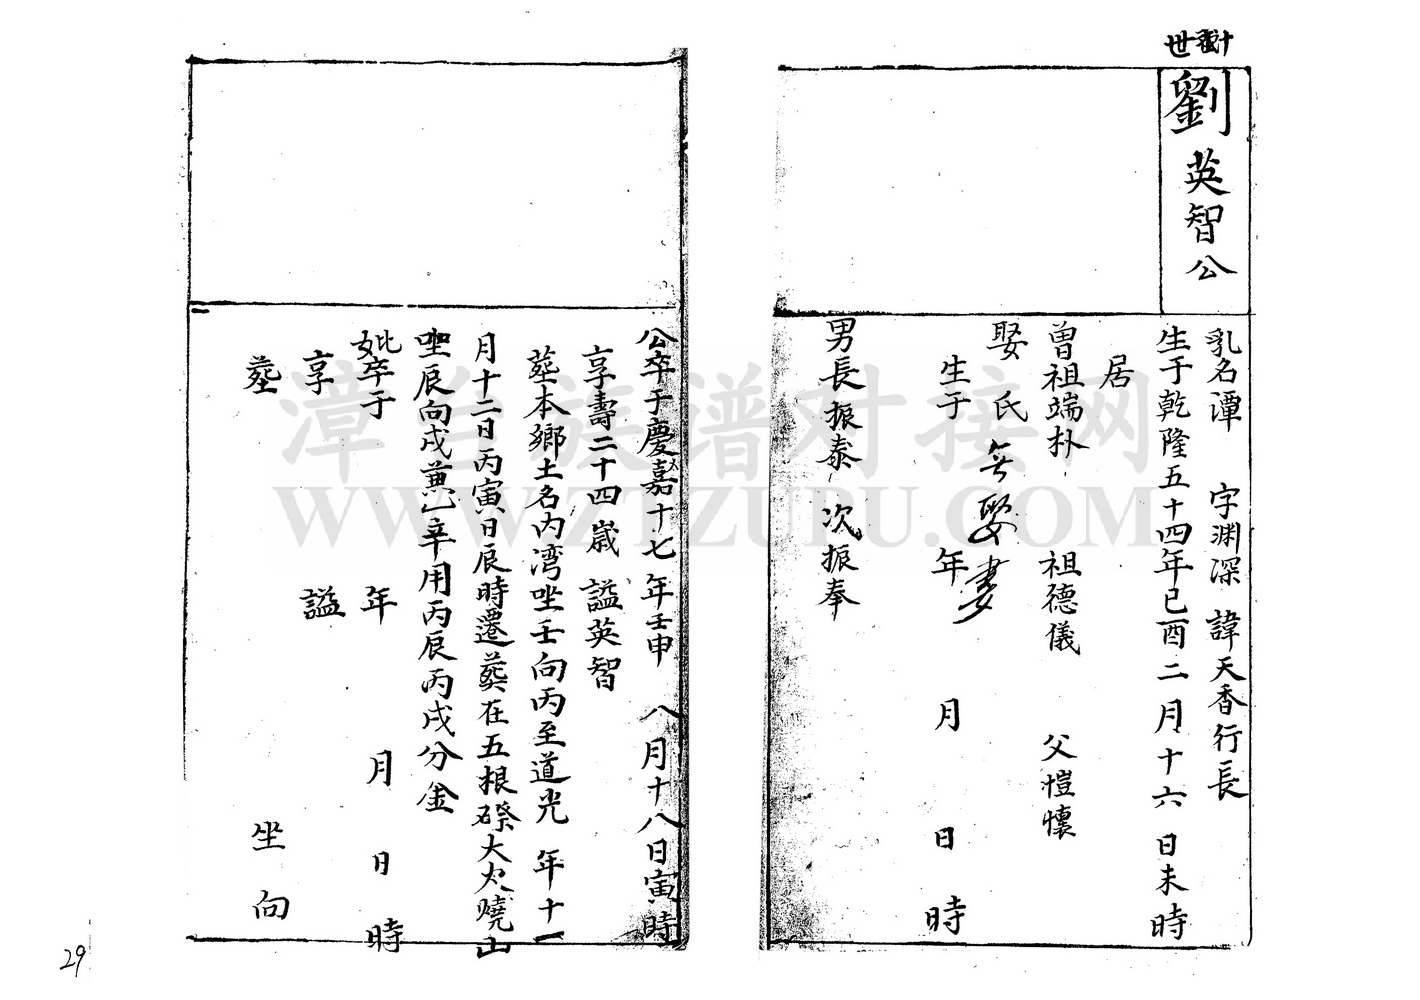 十貳世
劉英智公
乳名潭 字渊深 諱天香行長
生于乾隆五十四年己酉二月十六日未時
居
曾祖端朴 祖德儀 父愷懷
娶氏 無娶妻
生于 年 月 日 時
男長振泰 次振奉
公卒于慶嘉十七年壬申 八月十八日寅時
享壽二十四歲 謚英智
塟本鄉土名内湾坐壬向丙至道光 年十一
月十二日丙寅日辰時遷葬在五根磜大火燒山
坐辰向戌兼乙辛用丙辰丙戌分金
妣卒于 年 月 日 時
享 謚
塟 坐 向
漳台族谱对接网
WWW.ZTZUPU.COM
29